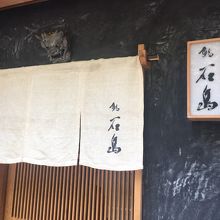 鮨 石島
鮨 石島